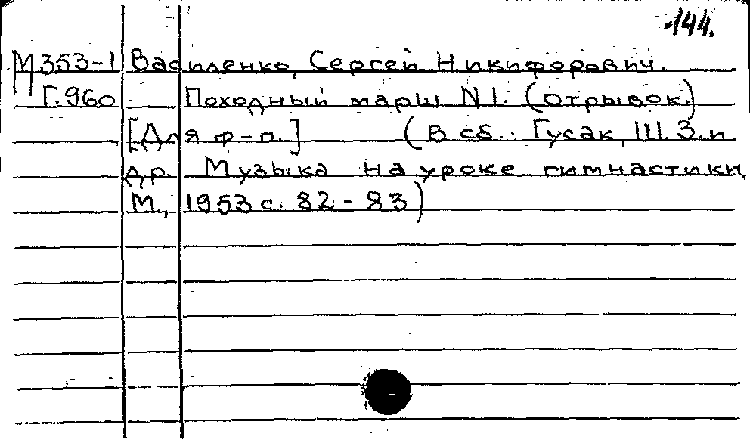 144.
М353-1 Василенко, Сергей Никифорович.
Г.960 Походный марш N1. (Отрывок.)
[Для ф-п.] (В сб.: Гусак, Ш. З. и
др. Музыка на уроке гимнастики
М., 1953 с. 82-83)